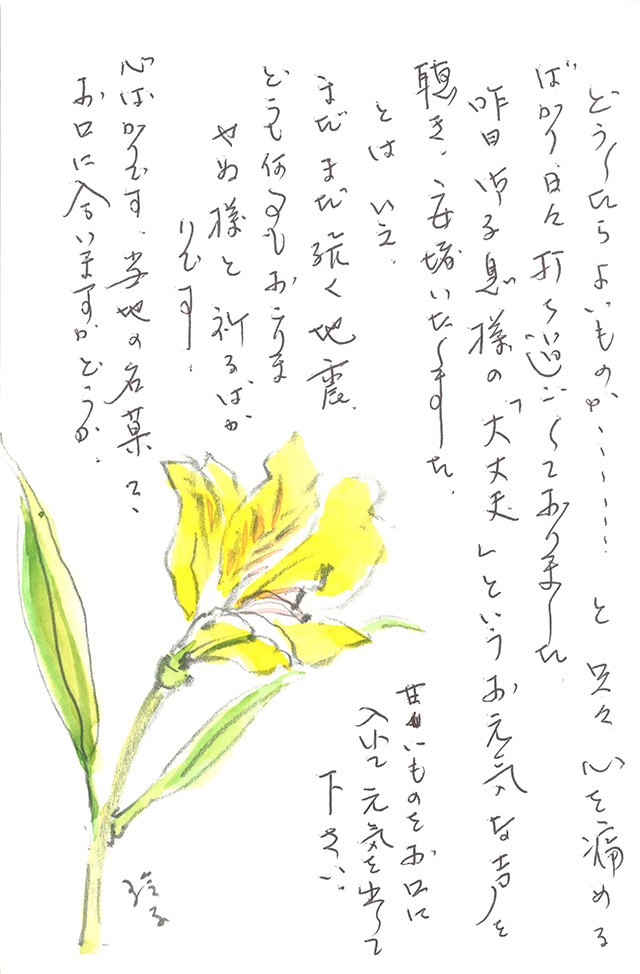 どうしたらよいものか、、、、、、と 只々 心を痛める
ばかり 日々 打ち過ごしておりました
昨日 御子息様の「大丈夫」というお元気な声を
聴き、安堵いたしました。
とは いえ、
まだ まだ 続く 地震、
どうも 何事も おこりま
せぬ様と 祈るばか
りです!
心ばかりです、当地の名菓で、
お口に合いますかどうか。
甘いものをお口に
入れて 元気を出して
下さい、